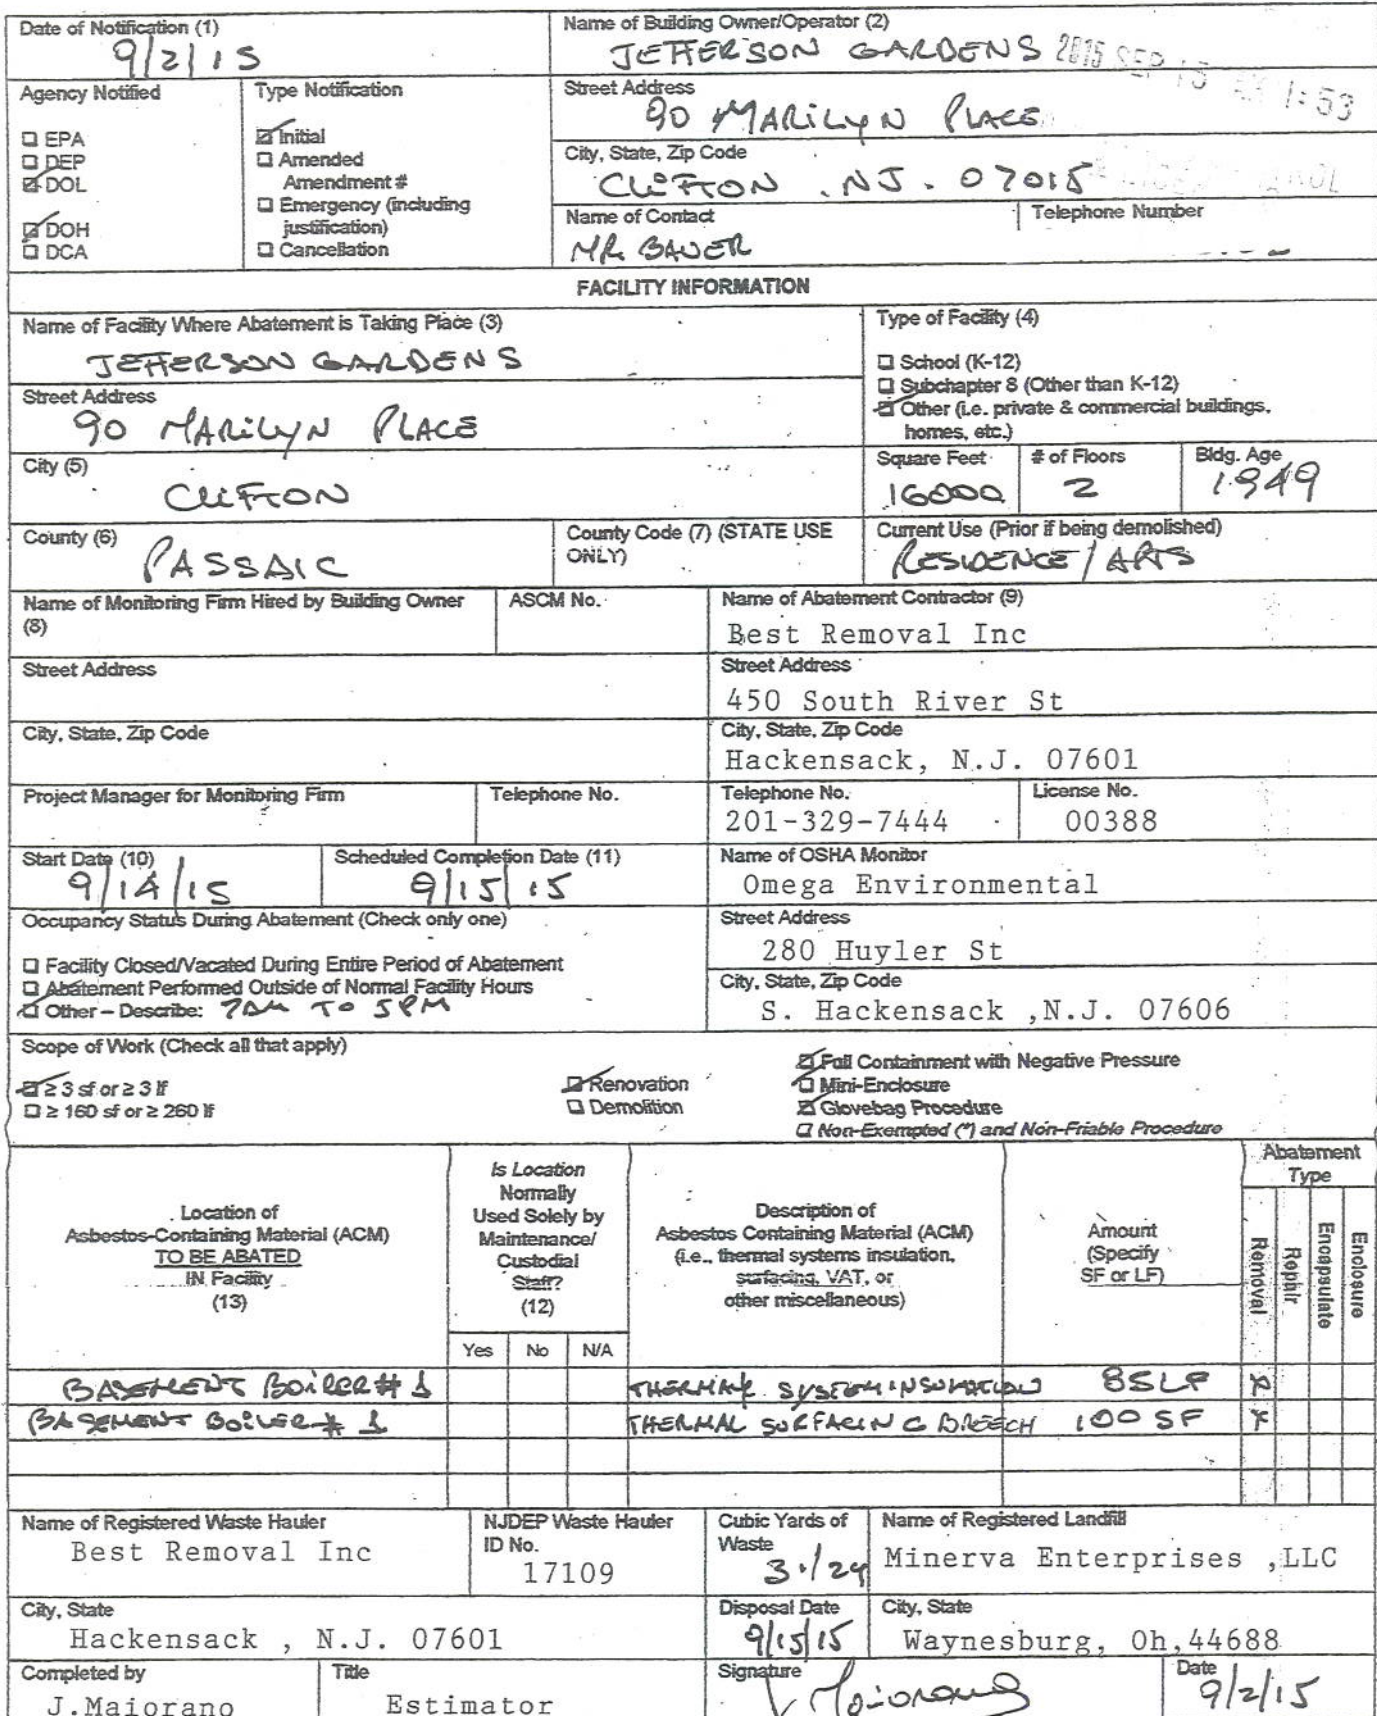 Date of Notification (1)
9/2/15
Name of Building Owner/Operator (2)
JEFFERSON GARDENS
2015 SEP 15 1:53
Agency Notified
EPA
DEP
DOL
DOH
DCA
Type Notification
Initial
Amended
Amendment #
Emergency (including
justification)
Cancellation
Street Address
90 MARILYN PLACE
City, State, Zip Code
CLIFTON . NJ. 07015
Name of Contact
MR. BAUER
Telephone Number
FACILITY INFORMATION
Name of Facility Where Abatement is Taking Place (3)
JEFFERSON GARDENS
Type of Facility (4)
School (K-12)
Subchapter 8 (Other than K-12)
Other (i.e. private & commercial buildings,
homes, etc.)
Street Address
90 MARILYN PLACE
City (5)
CLIFTON
Square Feet
16000
# of Floors
2
Bldg. Age
1949
County (6)
PASSAIC
County Code (7) (STATE USE
ONLY)
Current Use (Prior if being demolished)
RESIDENCE / APTS
Name of Monitoring Firm Hired by Building Owner
(8)
ASCM No.
Name of Abatement Contractor (9)
Best Removal Inc
Street Address
Street Address
450 South River St
City, State, Zip Code
City, State, Zip Code
Hackensack, N.J. 07601
Project Manager for Monitoring Firm
Telephone No.
Telephone No.
201-329-7444
License No.
00388
Start Date (10)
9/14/15
Scheduled Completion Date (11)
9/15/15
Name of OSHA Monitor
Omega Environmental
Occupancy Status During Abatement (Check only one)
Facility Closed/Vacated During Entire Period of Abatement
Abatement Performed Outside of Normal Facility Hours
Other – Describe: 7AM TO 5PM
Street Address
280 Huyler St
City, State, Zip Code
S. Hackensack ,N.J. 07606
Scope of Work (Check all that apply)
≥ 3 sf or ≥ 3 lf
≥ 160 sf or ≥ 260 lf
Renovation
Demolition
Full Containment with Negative Pressure
Mini-Enclosure
Glovebag Procedure
Non-Exempted (*) and Non-Friable Procedure
Location of
Asbestos-Containing Material (ACM)
TO BE ABATED
IN Facility
(13)
Is Location
Normally
Used Solely by
Maintenance/
Custodial
Staff?
(12)
Yes No N/A
Description of
Asbestos Containing Material (ACM)
(i.e., thermal systems insulation,
surfacing, VAT, or
other miscellaneous)
Amount
(Specify
SF or LF)
Abatement
Type
Removal
Repair
Encapsulate
Enclosure
BASEMENT BOILER # 1 THERMAL SYSTEM INSULATION 85LF X
BASEMENT BOILER # 1 THERMAL SURFACING BREECH 100 SF X
Name of Registered Waste Hauler
Best Removal Inc
NJDEP Waste Hauler
ID No.
17109
Cubic Yards of
Waste
Name of Registered Landfill
Minerva Enterprises ,LLC
City, State
Hackensack , N.J. 07601
Disposal Date
9/15/15
City, State
Waynesburg, Oh,44688
Completed by
J.Maiorano
Title
Estimator
Signature
J Maiorano
Date
9/2/15